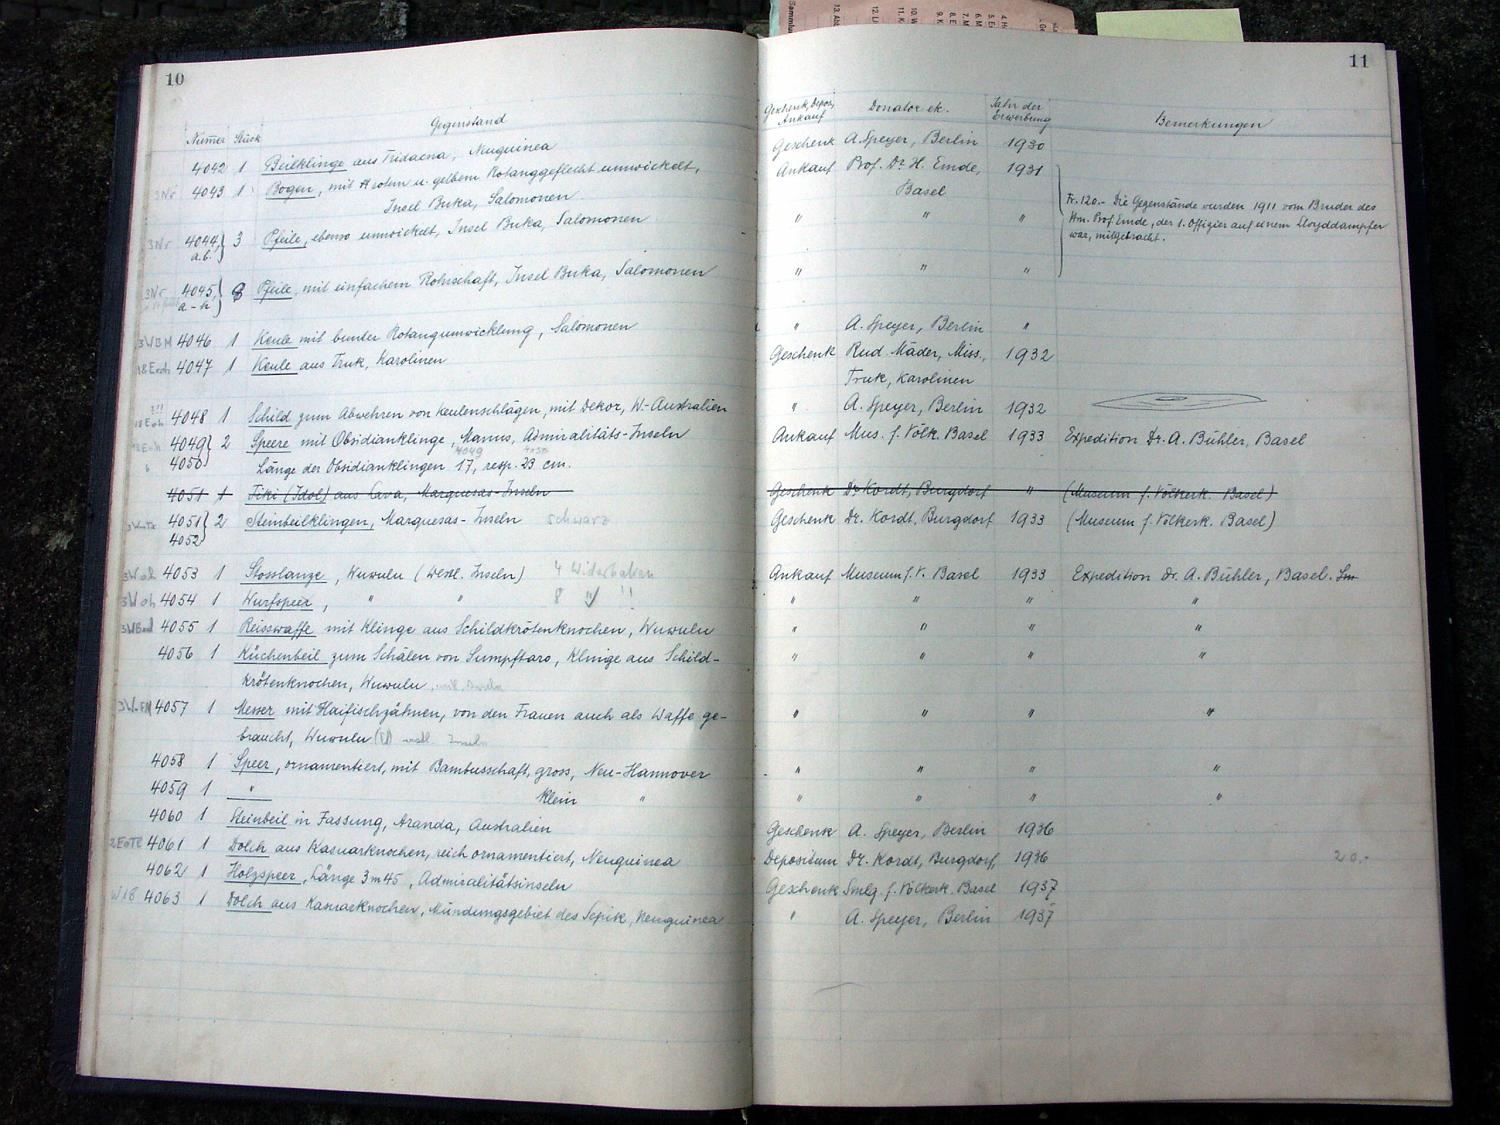 10
Gegenstand
Numer Stück
4042 1 Beilklinge aus Tridacna, Neuguinea
3Nr 4043 1 Bogen, mit rotem u. gelbem Rotanggeflecht umwickelt,
Insel Buka, Salomonen
3Nr 4044 a.b. } 3 Pfeile, ebenso umwickelt, Insel Buka, Salomonen
3Nr 4045 a-h } 8 Pfeile, mit einfachem Rohrschaft, Insel Buka, Salomonen
3WBM 4046 1 Keule mit bunter Rotangumwicklung, Salomonen
18Eroh 4047 1 Keule aus Truk, Karolinen
4048 1 Schild zum Abwehren von Keulenschlägen, mit Dekor, W-Australien
4049 } 2 Speere mit Obsidianklinge, Manus, Admiralitäts-Inseln
4050 Länge der Obsidianklingen 17, resp. 23 cm.
4049 4050
4051 1 Tiki (Idol) aus Lava, Marquesas-Inseln
4051 } 2 Steinbeilklingen, Marquesas-Inseln schwarz
4052
4053 1 Stosslanze, Wuwulu (westl. Inseln) 4 Widerhaken
4054 1 Wurfspeer, " " 8 " "
4055 1 Reisswaffe mit Klinge aus Schildkrötenknochen, Wuwulu
4056 1 Küchenbeil zum Schälen von Sumpftaro, Klinge aus Schild-
krötenknochen, Wuwulu
4057 1 Messer mit Haifischzähnen, von den Frauen auch als Waffe ge-
braucht, Wuwulu westl. Inseln
4058 1 Speer, ornamentiert, mit Bambusschaft, gross, Neu-Hannover
4059 1 " klein "
4060 1 Steinbeil in Fassung, Aranda, Australien
4061 1 Dolch aus Kasuarknochen, reich ornamentiert, Neuguinea
4062 1 Holzspeer, Länge 3m45, Admiralitätsinseln
W18 4063 1 Dolch aus Kasuarknochen, Mündungsgebiet des Sepik, Neuguinea
11
Geschenk, Depos, Ankauf Donator etc. Jahr der Erwerbung Bemerkungen
Geschenk A. Speyer, Berlin 1930
Ankauf Prof. Dr. H. Emde, 1931
Basel
Fr. 120.- Die Gegenstände wurden 1911 vom Bruder des
Hrn. Prof. Emde, der 1. Offizier auf einem Lloyddampfer
war, mitgebracht.
" " "
" " "
" A. Speyer, Berlin "
Geschenk Rud. Mäder, Miss., 1932
Truk, Karolinen
" A. Speyer, Berlin 1932
Ankauf Mus. f. Völk. Basel 1933 Expedition Dr. A. Bühler, Basel
Geschenk Dr. Kordt, Burgdorf " (Museum f. Völkerk. Basel)
Geschenk Dr. Kordt, Burgdorf 1933 (Museum f. Völkerk. Basel)
Ankauf Museum f. V. Basel 1933 Expedition Dr. A. Bühler, Basel.
" " " "
" " " "
" " " "
" " " "
" " " "
" " " "
Geschenk A. Speyer, Berlin 1936
Depositum Dr. Kordt, Burgdorf, 1936 20.-
Geschenk Smlg. f. Völkerk. Basel 1937
" A. Speyer, Berlin 1937